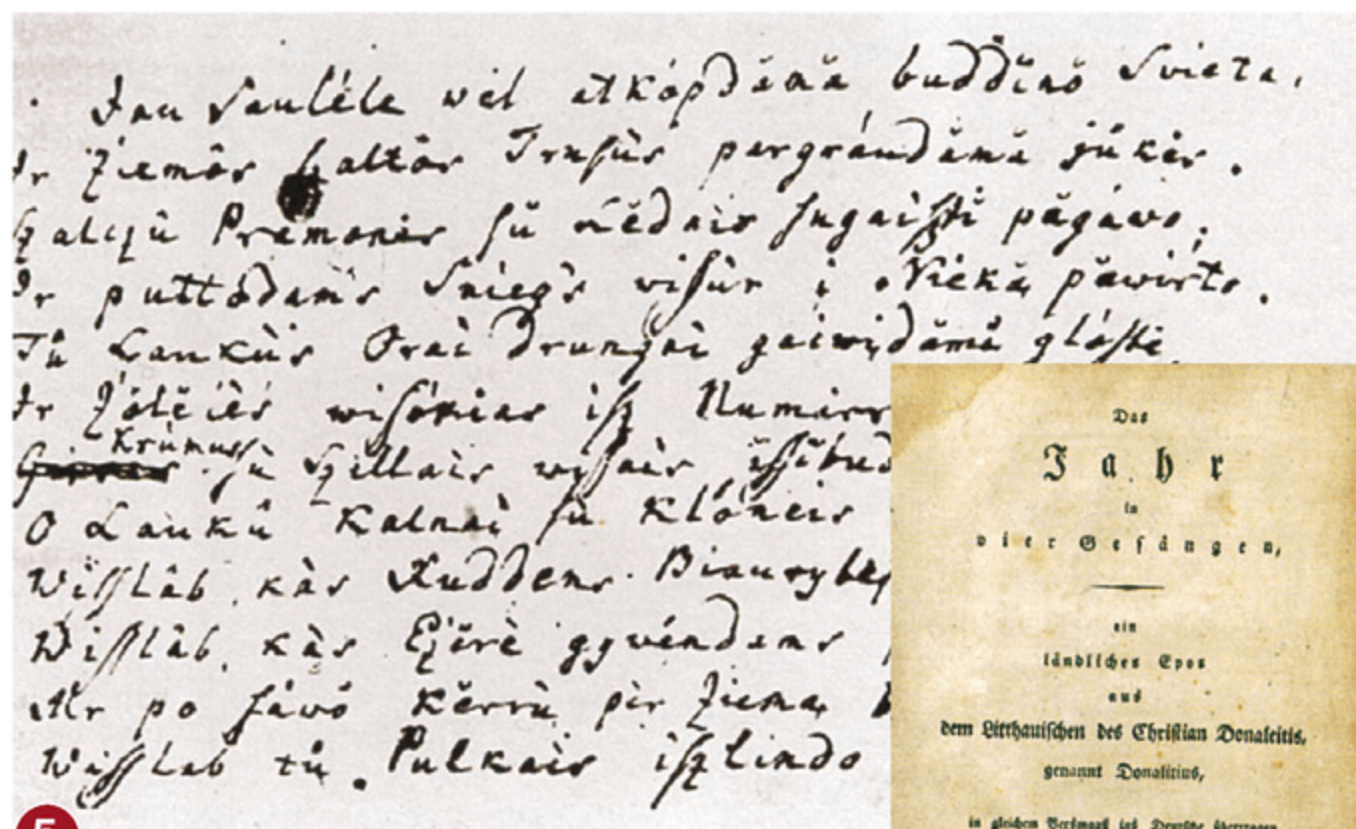 Jau Saulėle wėl atkópdămă buddĭnŏ Svietą,
Ir Ziemôs Szaltôs Trusùs pargráudămă jŭkės.
Szalcʒû Prămonės sŭ Lĕdais sugaiszti pŭgáwo,
Ir puttódam's Sniegs wisùr į Nieką păwirto.
Tŭ Laukùs Orai drungni gaiwįdămĭ glóstė
Ir Źólĕlės wisókias isz Numirr
Krúmus sù Szillais wissais iszsibud
O Laukû Kalnai sù Klóneis
Wisslab, kàs Ruddens Biaurybę
Wisslab, kàs Eʒĕrė gywéndams
Ar po sáwŏ Kĕrrù pėr Ziemą
Wisslab tŭ Pulkais iszlindo
5
Das
Jahr
in
vier Gesängen,
ein
ländliches Epos
aus
dem Litthauischen des Christian Donaleitis,
genannt Donalitius,
in gleichem Versmaaß ins Deutsche übertragen